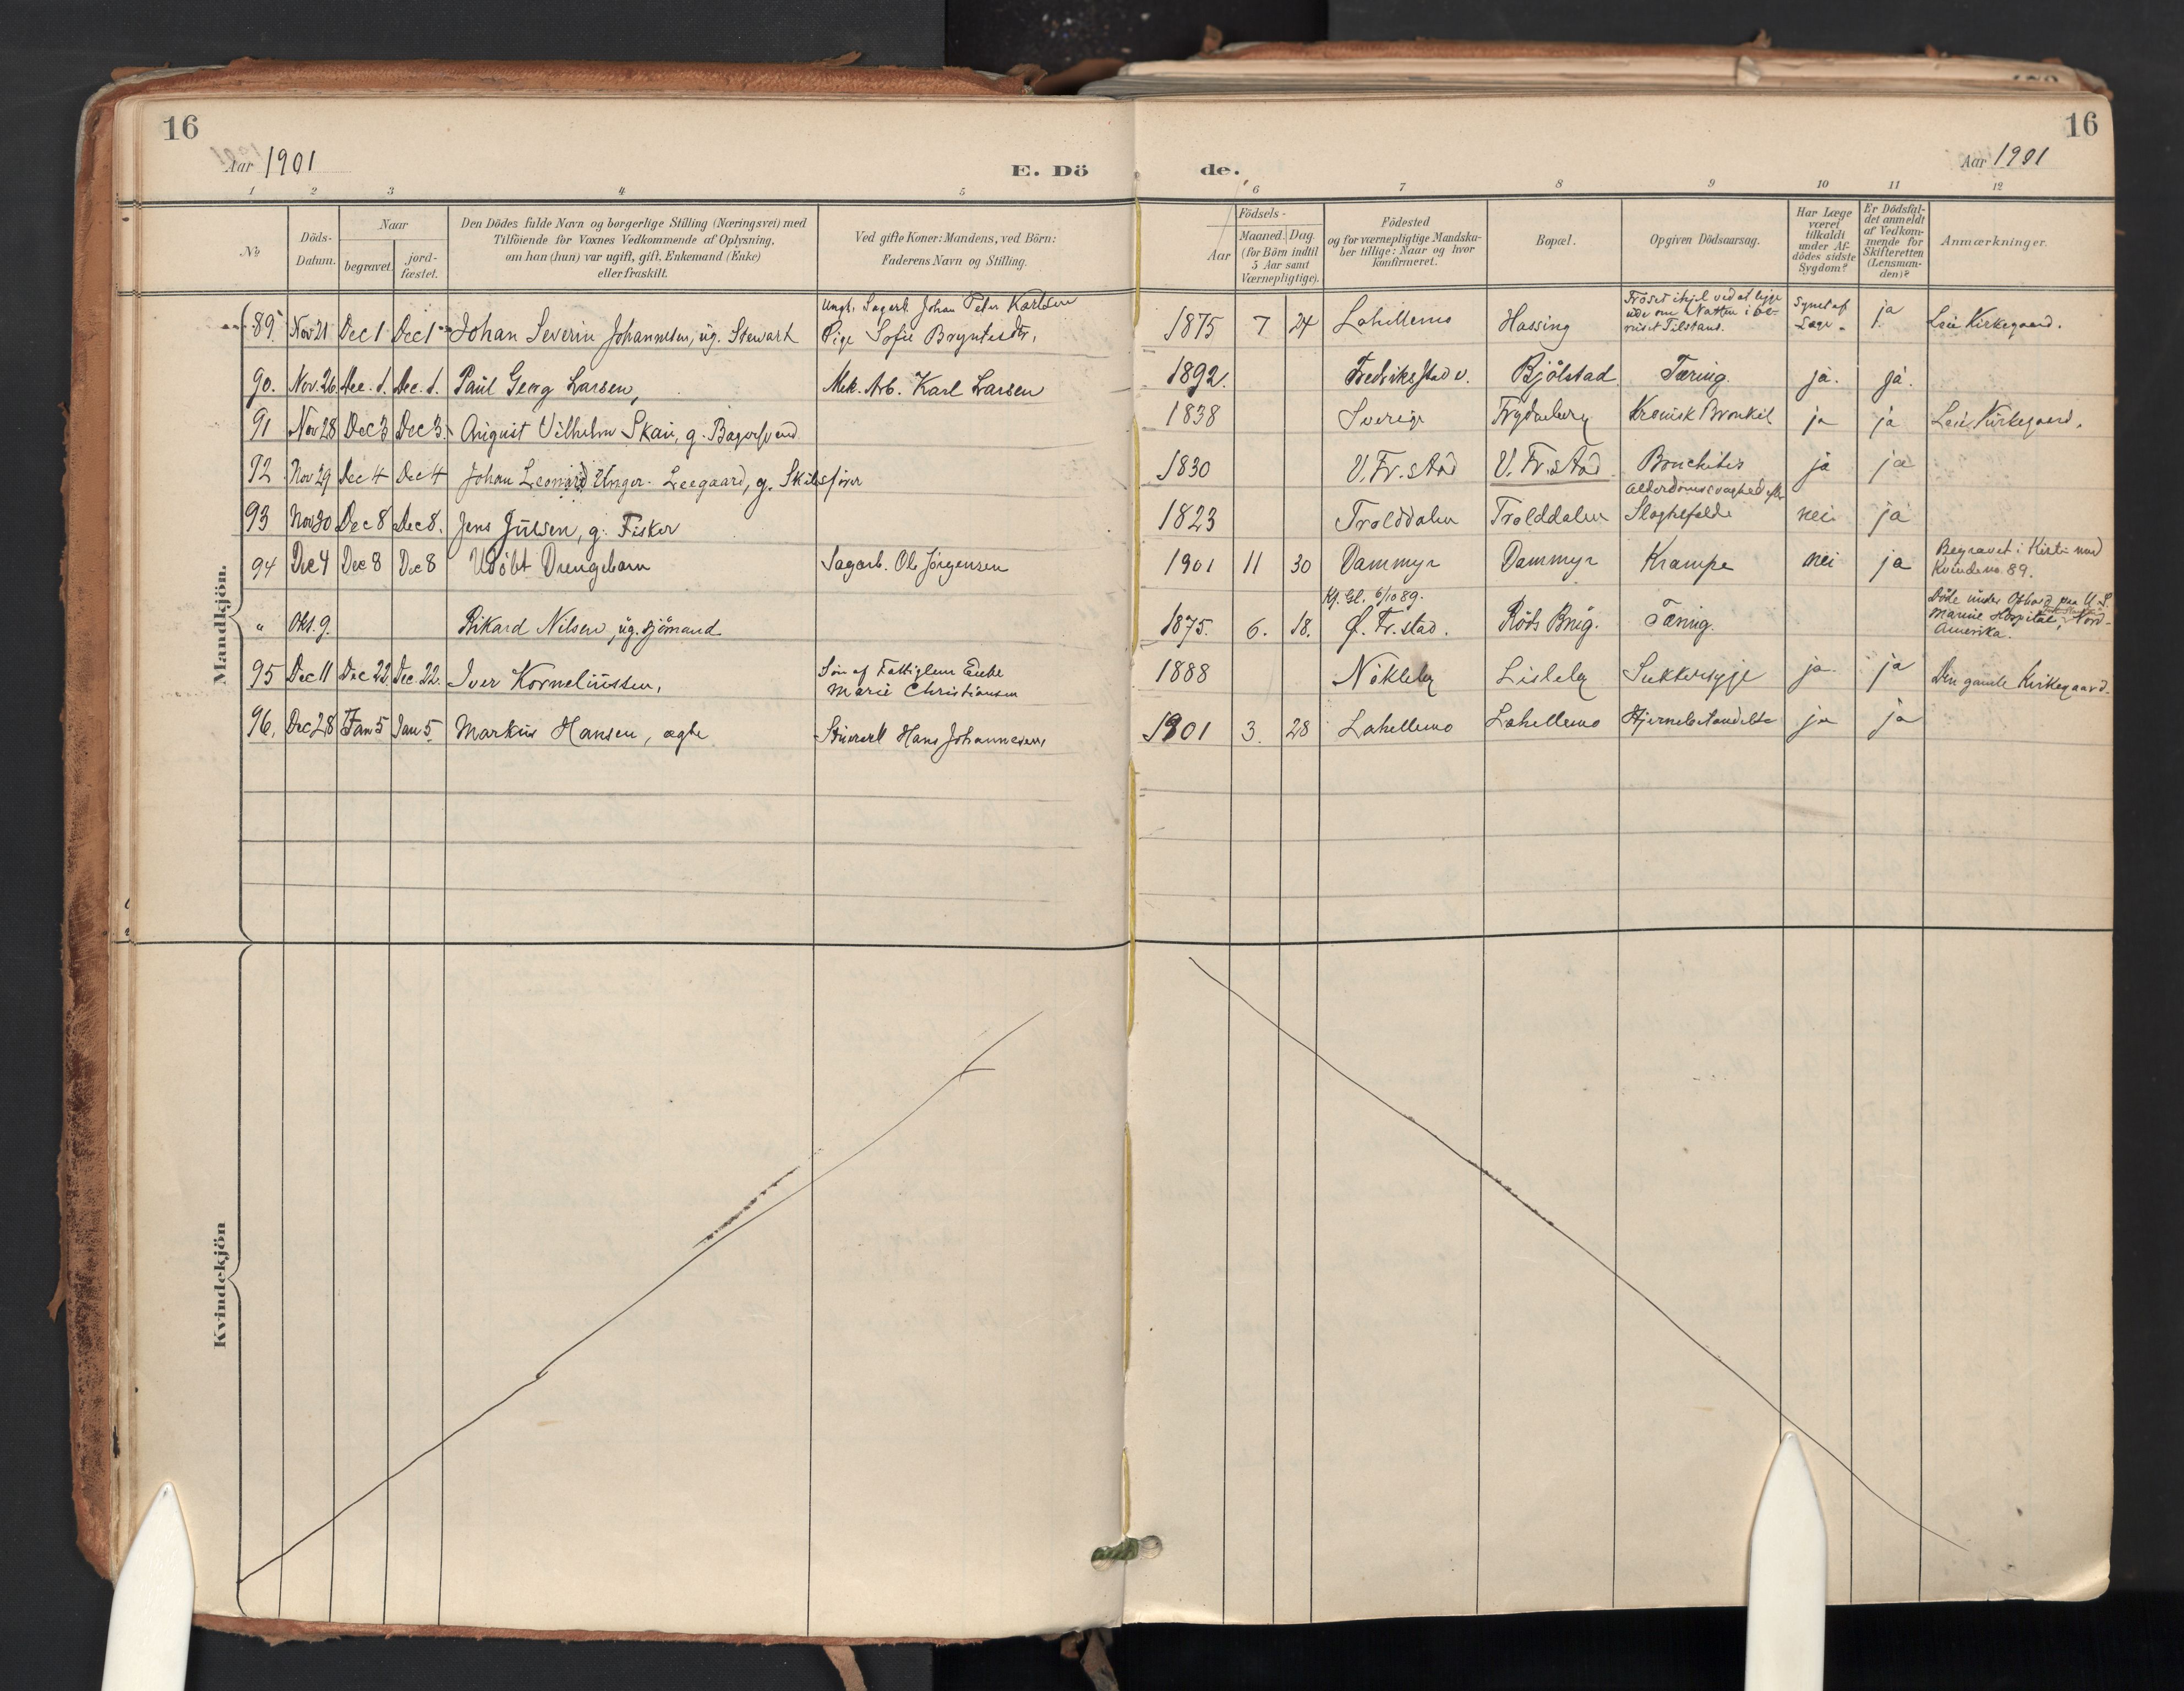 16
16
Aar 1901
E. Dö
de.
Aar 1901
1 2 3 4 5 6 7 8 9 10 11 12
No
Döds-
Datum.
Naar
begravet.
jord-
fæstet.
Den Dödes fulde Navn og borgerlige Stilling (Næringsvei) med
Tilföiende for Voxnes Vedkommende af Oplysning,
om han (hun) var ugift, gift, Enkemand (Enke)
eller fraskilt.
Ved gifte Koner: Mandens, ved Börn:
Faderens Navn og Stilling.
Födsels-
Aar
Maaned. Dag.
(for Börn indtil
5 Aar samt
Værnepligtige).
Födested
og for værnepligtige Mandska-
ber tillige: Naar og hvor
konfirmeret.
Bopæl.
Opgiven Dödsaarsag.
Har Læge
været
tilkaldt
under Af-
dödes sidste
Sygdom?
Er Dödsfal-
det anmeldt
af Vedkom-
mende for
Skifteretten
(Lensman-
den)?
Anmærkninger.
Mandkjön.
89. Nov 21 Dec 1 Dec 1 Johan Severin Johannesen, ug. Stewart
Ungk. Sagarb. Johan Peter Karlsen
Pige Sofie Bryntesdtr,
1875 7 24 Lahellemo Hassing
Fröset ihjel ved at ligge
ude om Natten i be-
ruset Tilstand.
Synet af
Læge. ja Leie Kirkegaard.
90. Nov. 26 Dec. 1. Dec. 1. Paul Georg Larsen, Mek. Arb. Karl Larsen 1892. Fredriksstad v. Bjölstad Tæring. ja. ja.
91 Nov 28 Dec 3 Dec 3. August Vilhelm Skau, g. Bagersvend 1838 Sverige Trydenberg Kronisk Bronkit ja ja Leie Kirkegaard.
92. Nov 29 Dec 4 Dec 4 Johan Leonard Unger Leegaard, g. Skibsförer 1830 V. Fr.stad V. Fr.stad Bronchitis ja ja
93 Nov 30 Dec 8 Dec 8. Jens Julsen, g. Fisker 1823 Trolddalen Trolddalen
Alderdomssvaghed eft.
Slagtilfælde nei ja
94 Dec 4 Dec 8 Dec 8 Udöbt Drengebarn Sagarb. Ole Jörgensen 1901 11 30 Dammyr Dammyr Krampe nei ja
Begravet i Kiste med
Kvinde no. 89.
" Okt. 9. Rikard Nilsen, ug. sjömand 1875. 6. 18.
Kf. Gl. 6/10 89.
Ø. Fr.stad. Röds Brug. Tæring.
Döde under Ophold paa U.S.
Marine Hospital, Nord-
Amerika.
95 Dec 11 Dec 22 Dec. 22. Iver Korneliussen,
Sön af Fattiglem Enke
Marie Christiansen
1888 Nökleby Lisleby Sukkersyge ja ja Den gamle Kirkegaard.
96. Dec 28 Jan 5 Jan 5. Markus Hansen, ægte Hans Johannesen 1901 3. 28 Lahellemo Lahellemo Hjernebetændelse ja ja
Kvindekjön